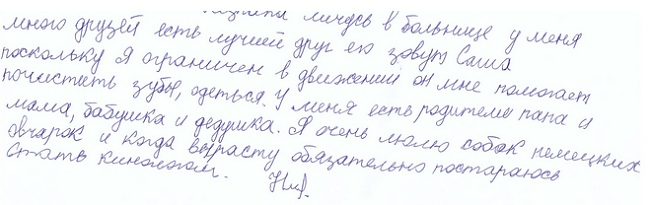 личусь в больнице у меня
много друзей есть лучшей друг его зовут Саша
поскольку я ограничен в движений он мне помогает
почистить зубы, одеться. У меня есть родители папа и
мама, бабушка и дедушка. Я очень люлю собак немецких
овчарок и когда вырасту обязательно постараюсь
стать кинологом.